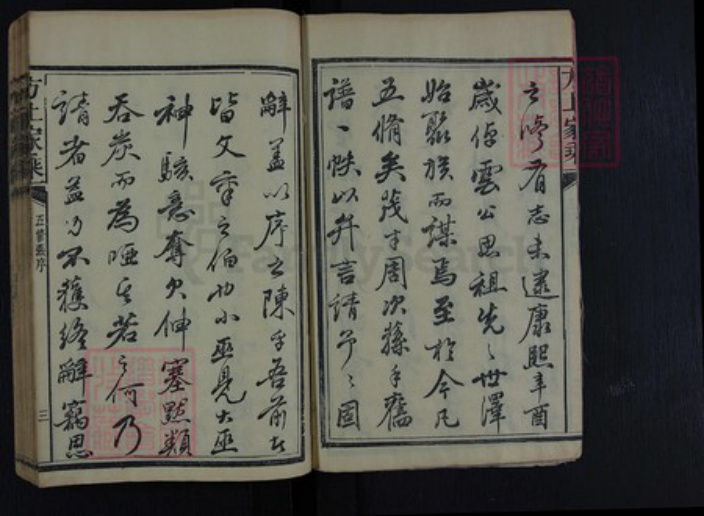 之修有志未逮康熙辛酉
歲倬雲公思祖先之世澤
始聚族而謀焉至於今凡
五脩矣茂才周次蓀手舊
譜一帙以弁言請予予固
辭蓋以序之陳乎吾前者
皆文章之伯也小巫見大巫
神駭意奪欠伸塞默類
吞炭而為啞其若之何乃
請者益力不獲終辭竊思
方上家乘
五修張序
三
方上家乘
FamilySearch